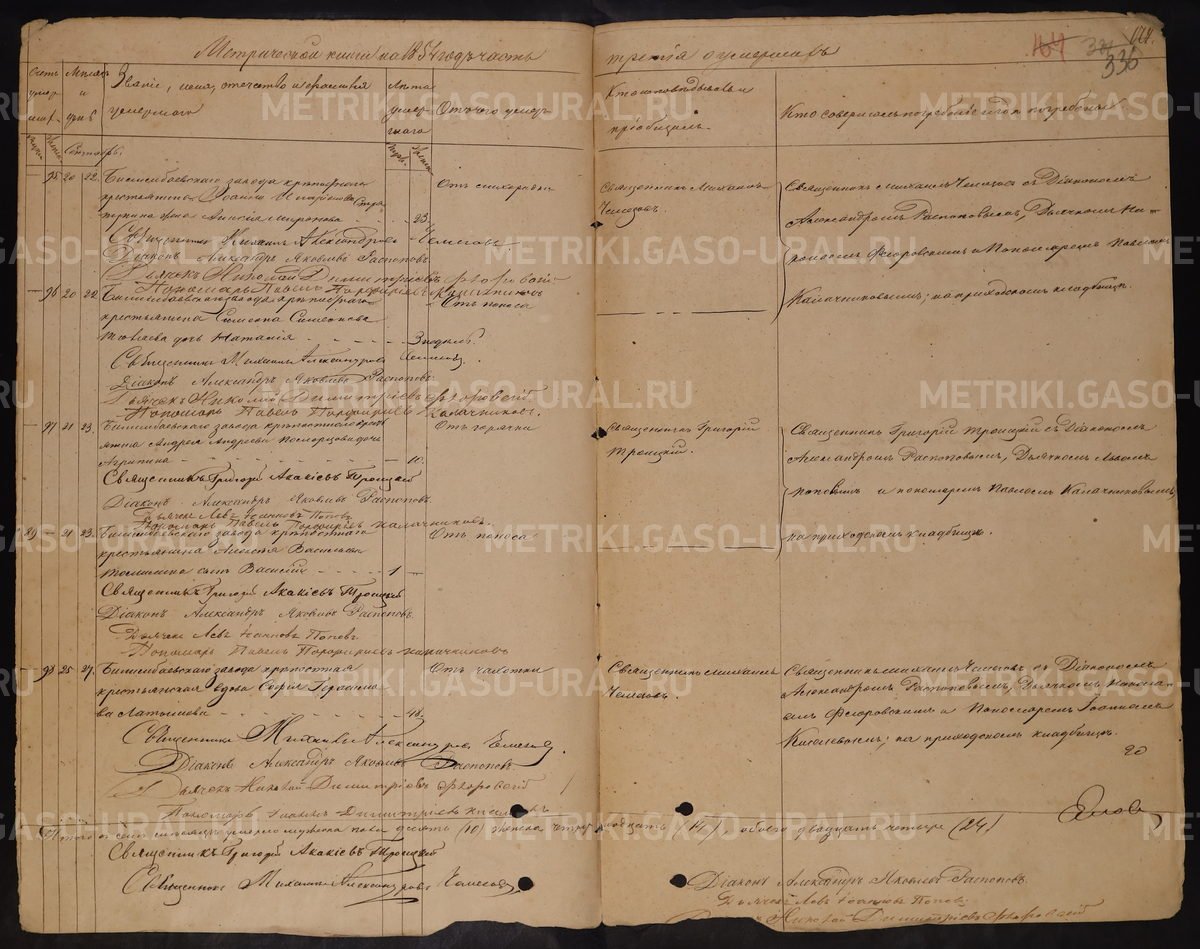 Метрической книги на 1854 годъ часть
третія о умершихъ
164
336
Счетъ умер-
Мѣсяцъ и день
Званіе, имя, отчество и фамилія
умершаго
Лѣта
умер-
шаго
Отъ чего умеръ
Кто исповѣдывалъ и
пріобщилъ.
Кто совершалъ погребеніе и гдѣ погребены.
Сентябрь.
95 20 22.
Билимбаевскаго завода
крестьянина
жена Анисія Миронова 23.
Отъ лихорадки
Священникъ Михаилъ
Чемезовъ.
Священникъ Михаилъ Чемезовъ съ Діакономъ
Александромъ Распоповымъ, Дьячкомъ Ни-
колаемъ Флоровскимъ и Пономаремъ Павломъ
Калачниковымъ; на приходскомъ кладбищѣ.
Священникъ Михаилъ Александровъ Чемезовъ
Діаконъ Александръ Яковлевъ Распоповъ.
Дьячекъ Николай Димитріевъ Флоровскій
Пономарь Павелъ Порфиріевъ Калачниковъ
96 20 22.
Билимбаевскаго завода крѣпостнаго
крестьянина Симеона Симеонова
дочь Наталія 3 недѣл.
Отъ поноса
Священникъ Михаилъ Александровъ Чемезовъ.
Діаконъ Александръ Яковлевъ Распоповъ.
Дьячекъ Николай Димитріевъ Флоровскій.
Пономарь Павелъ Порфиріевъ Калачниковъ.
97 21 23.
Билимбаевскаго завода крѣпостнаго крест-
янина Андрея Андреева дочь
Агрипина 10.
Отъ горячки
Священникъ Григорій
Троицкій.
Священникъ Григорій Троицкій съ Діакономъ
Александромъ Распоповымъ, Дьячкомъ Львомъ
Поповымъ и пономаремъ Павломъ Калачниковымъ;
на приходскомъ кладбищѣ.
Священникъ Григорій Акакіевъ Троицкій
Діаконъ Александръ Яковлевъ Распоповъ.
Дьячекъ Левъ Іоанновъ Поповъ.
Пономарь Павелъ Порфиріевъ Калачниковъ.
21 23.
Билимбаевскаго завода крѣпостнаго
крестьянина Алексѣя Васильева
сынъ Василій 1
Отъ поноса
Священникъ Григорій Акакіевъ Троицкій
Діаконъ Александръ Яковлевъ Распоповъ.
Дьячекъ Левъ Іоанновъ Поповъ.
Пономарь Павелъ Порфиріевъ Калачниковъ
98 25 27.
Билимбаевскаго завода крѣпостная
крестьянская вдова Софія Герасимо-
ва Латышева 48.
Отъ чахотки
Священникъ Михаилъ
Чемезовъ.
Священникъ Михаилъ Чемезовъ съ Діакономъ
Александромъ Распоповымъ, Дьячкомъ Никола-
емъ Флоровскимъ и Пономаремъ Іоанномъ
Киселевымъ; на приходскомъ кладбищѣ.
Священникъ Михаилъ Александровъ Чемезовъ.
Діаконъ Александръ Яковлевъ Распоповъ.
Дьячекъ Николай Димитріевъ Флоровскій
Пономарь Іоаннъ Димитріевъ Киселевъ
Итого въ семъ мѣсяцѣ умерло мужска пола десять (10) женска четырнадцать (14), обоего двадцать четыре (24)
Священникъ Григорій Акакіевъ Троицкій
Священникъ Михаилъ Александровъ Чемезовъ
Діаконъ Александръ Яковлевъ Распоповъ.
Дьячекъ Левъ Іоанновъ Поповъ.
Николай Димитріевъ Флоровскій
METRIKI.GASO-URAL.RU